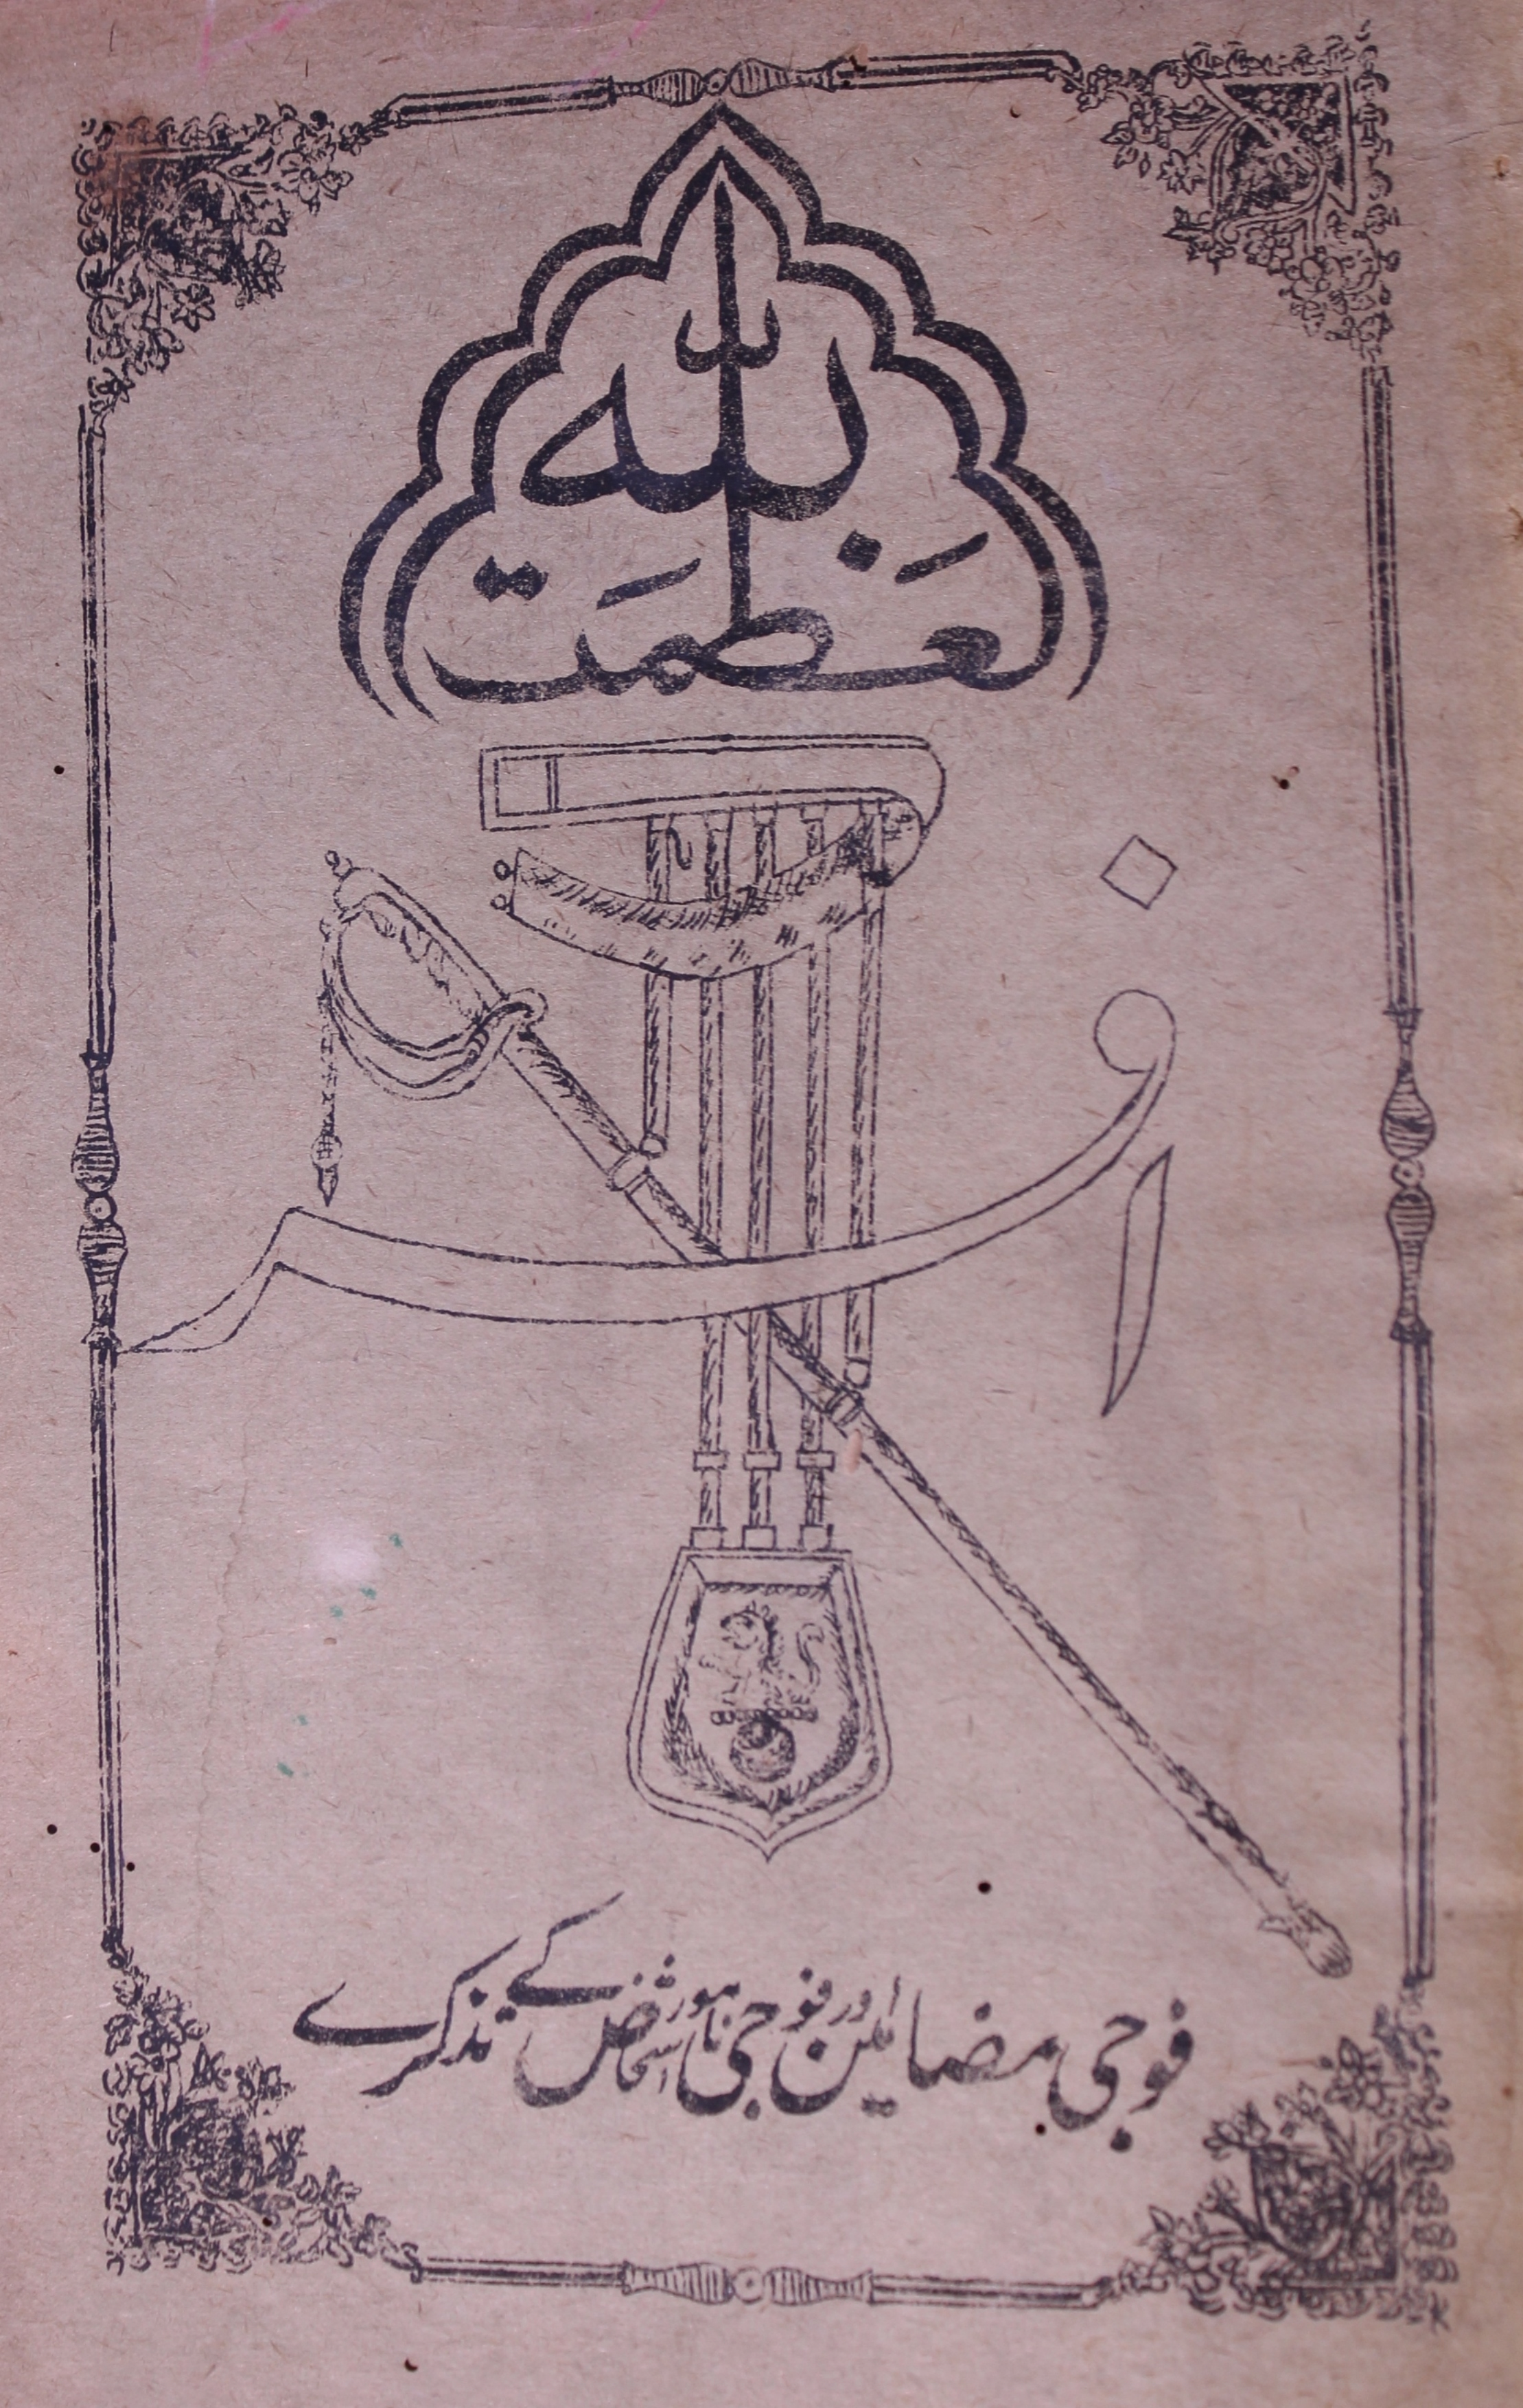 العَظَمَت لله
افسر
فوجی مضامین اور فوجی نامور اشخاص کے تذکرے